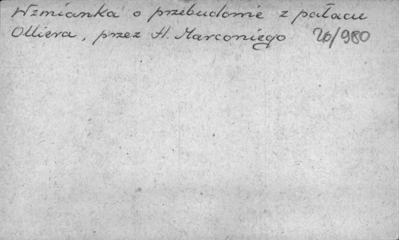 Wzmianka o przebudowie z pałacu
Olliera, przez H. Marconiego 26/980